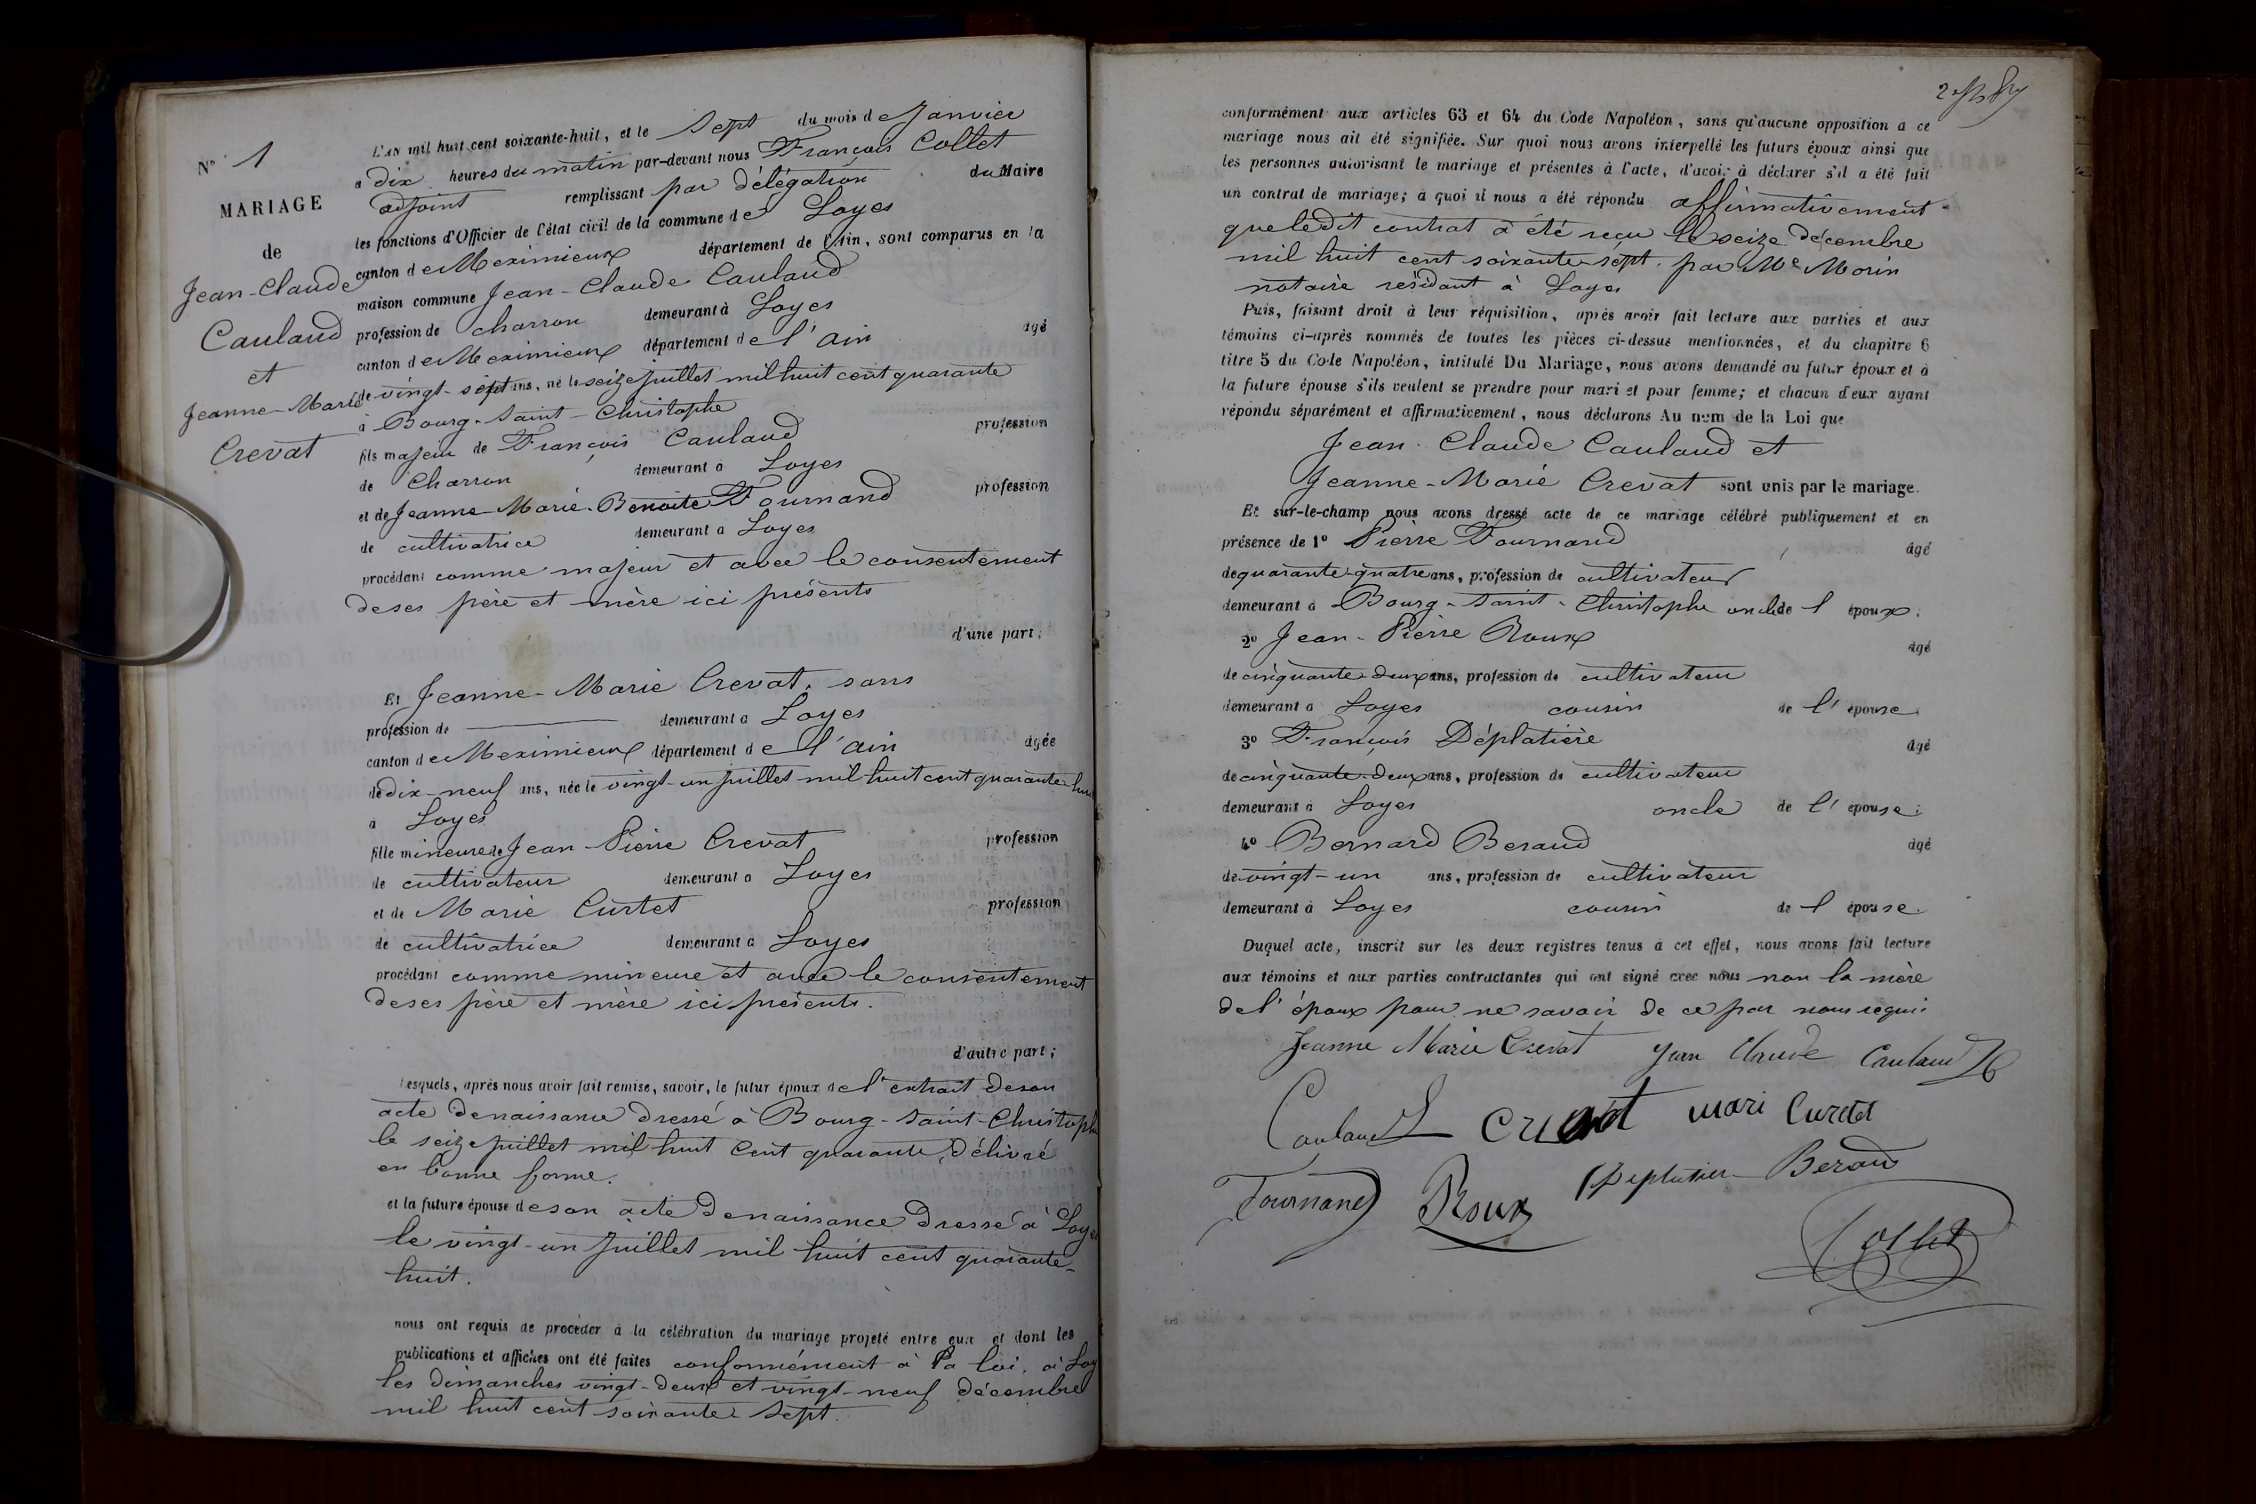 N° 1
MARIAGE
de
Jean-Claude
Cauland
et
Jeanne-Marie
Crevat
L'AN mil huit cent soixante-huit, et le sept du mois de Janvier
à dix heures du matin par-devant nous François Collet
adjoint remplissant par délégation du Maire
les fonctions d'Officier de l'état civil de la commune de Loyes
canton de Meximieux département de l'Ain, sont comparus en la
maison commune Jean-Claude Cauland
profession de charron demeurant à Loyes
canton de Meximieux département de l'ain âgé
de vingt-sept ans, né le seize juillet mil huit cent quarante
à Bourg-Saint-Christophe
fils majeur de François Cauland profession
de Charron demeurant à Loyes
et de Jeanne-Marie-Benoite Fournand profession
de cultivatrice demeurant à Loyes
procédant comme majeur et avec le consentement
de ses père et mère ici présents
d'une part;
Et Jeanne-Marie Crevat, sans
profession de demeurant à Loyes
canton de Meximieux département de l'ain âgée
de dix-neuf ans, née le vingt-un juillet mil huit cent quarante-huit
à Loyes
fille mineure de Jean-Pierre Crevat profession
de cultivateur demeurant à Loyes
et de Marie Curtet profession
de cultivatrice demeurant à Loyes
procédant comme mineure et avec le consentement
de ses père et mère ici présents.
d'autre part;
Lesquels, après nous avoir fait remise, savoir, le futur époux de l'extrait de son
acte de naissance dressé à Bourg-Saint-Christophe
le seize juillet mil huit cent quarante, délivré
en bonne forme.
et la future épouse de son acte de naissance dressé à Loyes
le vingt-un juillet mil huit cent quarante-
huit.
nous ont requis de procéder à la célébration du mariage projeté entre eux et dont les
publications et affiches ont été faites conformément à la loi, à Loy
les dimanches vingt-deux et vingt-neuf décembre
mil huit cent soixante-sept.
conformément aux articles 63 et 64 du Code Napoléon, sans qu'aucune opposition à ce
mariage nous ait été signifiée. Sur quoi nous avons interpellé les futurs époux ainsi que
les personnes autorisant le mariage et présentes à l'acte, d'avoir à déclarer s'il a été fait
un contrat de mariage; à quoi il nous a été répondu affirmativement
que ledit contrat a été reçu le seize décembre
mil huit cent soixante-sept. par Me Morin
notaire résidant à Loyes
Puis, faisant droit à leur réquisition, après avoir fait lecture aux parties et aux
témoins ci-après nommés de toutes les pièces ci-dessus mentionnées, et du chapitre 6
titre 5 du Code Napoléon, intitulé Du Mariage, nous avons demandé au futur époux et à
la future épouse s'ils veulent se prendre pour mari et pour femme; et chacun d'eux ayant
répondu séparément et affirmativement, nous déclarons Au nom de la Loi que
Jean-Claude Cauland et
Jeanne-Marie Crevat sont unis par le mariage.
Et sur-le-champ nous avons dressé acte de ce mariage célébré publiquement et en
présence de 1° Pierre Fournand âgé
de quarante-quatre ans, profession de cultivateur
demeurant à Bourg-Saint-Christophe oncle de l'époux;
2° Jean-Pierre Roux âgé
de cinquante-deux ans, profession de cultivateur
demeurant à Loyes cousin de l'épouse
3° François Déplatière âgé
de cinquante-deux ans, profession de cultivateur
demeurant à Loyes oncle de l'épouse;
4° Bernard Beraud âgé
de vingt-un ans, profession de cultivateur
demeurant à Loyes cousin de l'épouse.
Duquel acte, inscrit sur les deux registres tenus à cet effet, nous avons fait lecture
aux témoins et aux parties contractantes qui ont signé avec nous non la mère
de l'époux pour ne savoir de ce par nous requis
Jeanne Marie Crevat Jean Claude Cauland
Cauland Crevat mari Curtet
Fournand Roux Deplatier Beraud
Collet